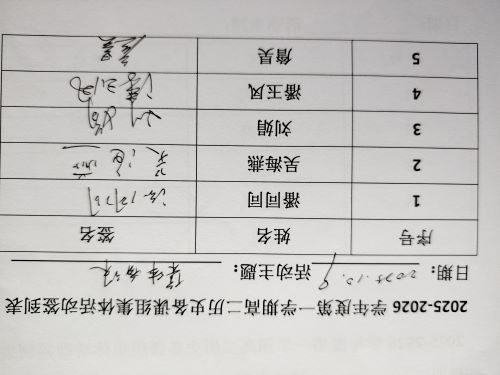 2025-2026 学年度第一学期高二历史备课组集体活动签到表
日期：2025.12.9 活动主题：集体备课
序号 姓名 签名
1 潘同同 潘同同
2 吴海燕 吴海燕
3 刘娟 刘娟
4 潘玉凤 潘玉凤
5 詹昊 詹昊